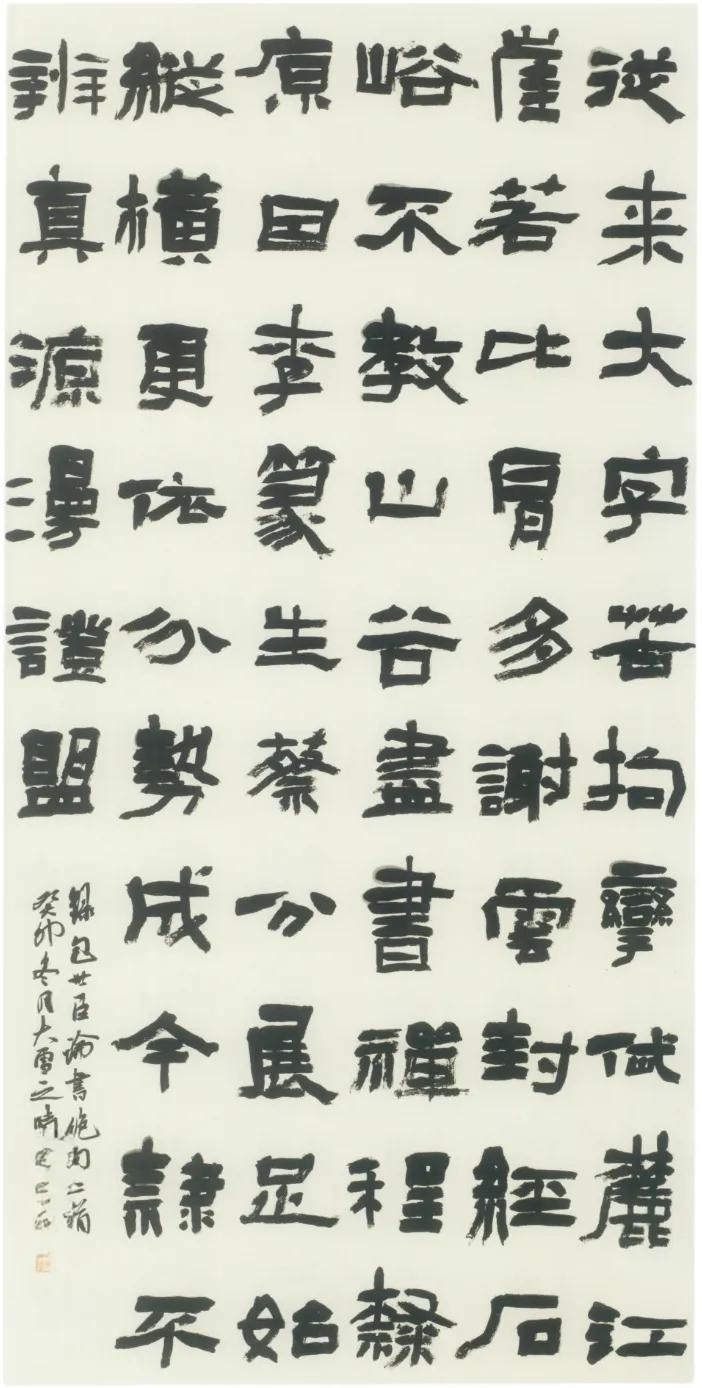 從来大字苦拘攣岱麓江
崖若比肩多謝雲封經石
峪不教山谷盡書禪程隸
原因李篆生蔡分展足始
縱橫更依分勢成今隸不
辨真源漫證盟
録包世臣論書絶句二首
癸卯冬月大雪之晴